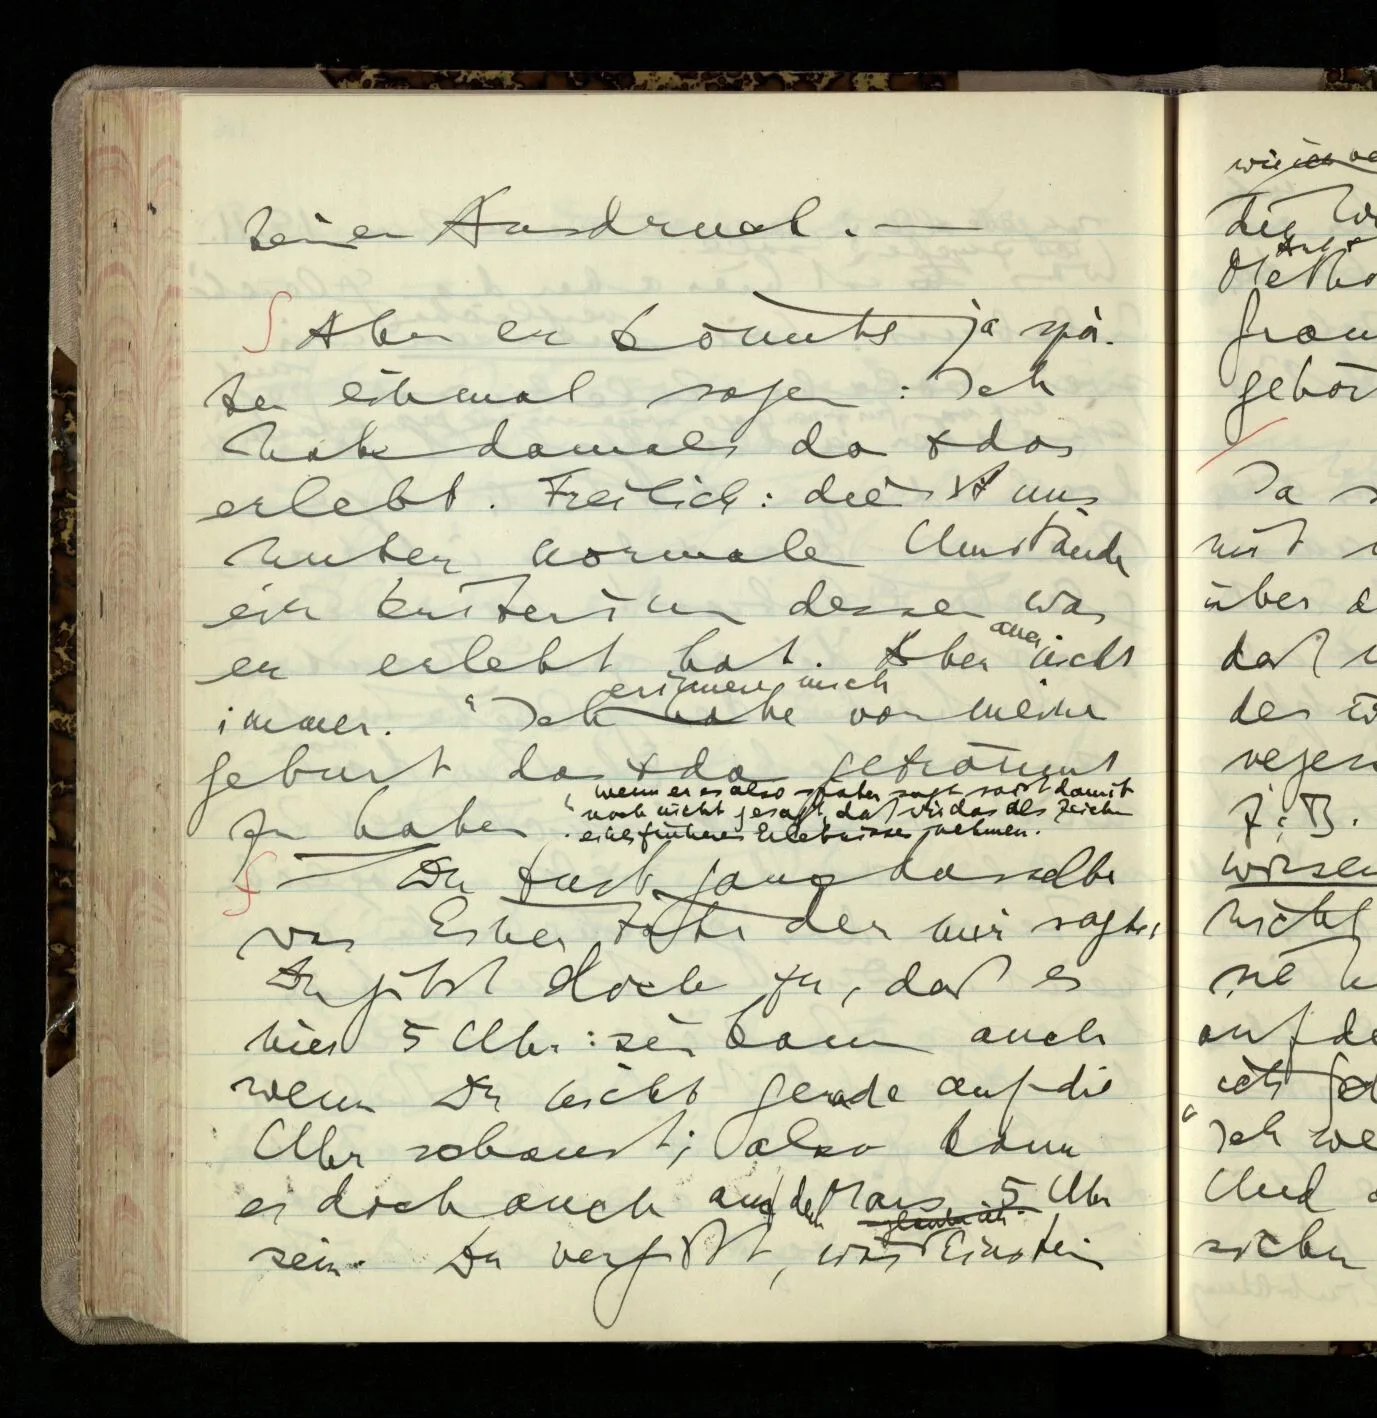 keinen Ausdruck. —
∫ Aber er könnte ja spä-
ter einmal sagen: Ich
habe damals da & das
erlebt. Freilich: dies ist uns
unter normale Umstände
ein Kriterium dessen was
er erlebt hat. Aber nicht
immer. "Ich erinnere mich vor meine
Geburt das & das geträumt
zu haben".
wenn er es also später sagt so ist damit
noch nicht gesagt, daß wir das als Zeichen
eines früheren Erlebnisses nehmen.
∫ — Du tust ganz dasselbe
was Einer täte der mir sagte:
Du gibst doch zu, daß es
hier 5 Uhr: sein kann auch
wenn Du nicht gerade auf die
Uhr schaust; also kann
es doch auch auf dem Mars 5 Uhr
sein. Du vergißt, was Einstein
die
gehör
Ja
mit
über
daß
des
Z.B.
wissen
nicht
sie
auf de
"Ich we
Und